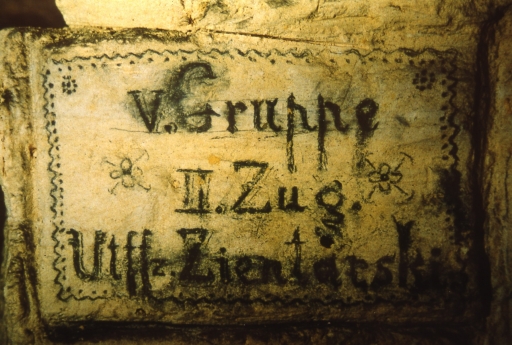 V. Gruppe
II. Zug.
Utff. Zientarski.